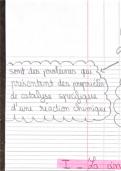 sont des protéines qui
présentent des propriétés
de catalyse spécifique
d'une réaction chimique
I - La